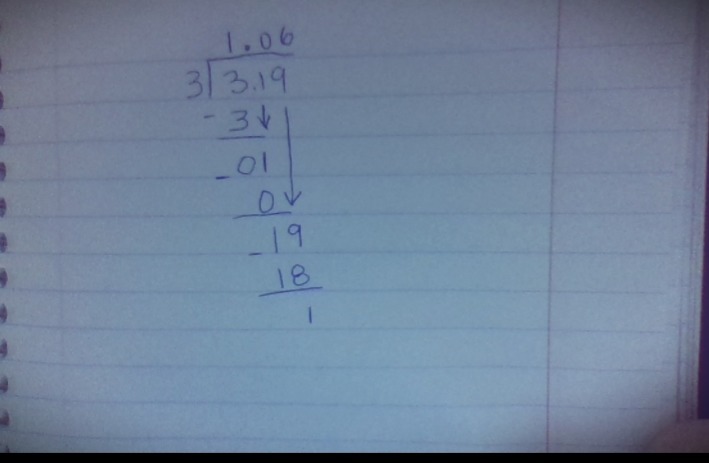 1.06
3 3.19
- 3
- 01
0
- 19
18
1